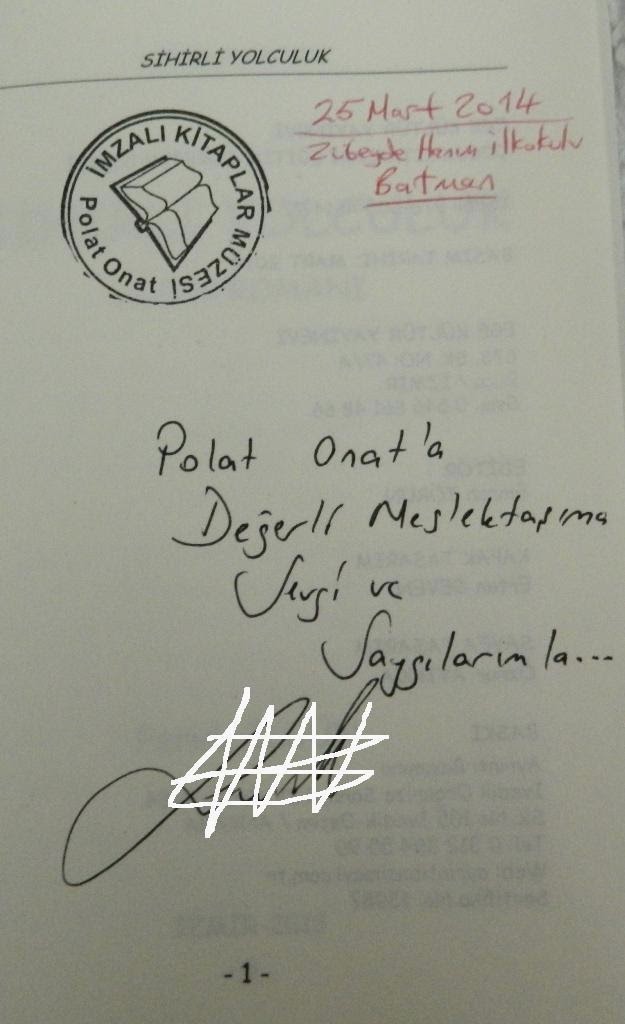 SİHİRLİ YOLCULUK
25 Mart 2014
Zübeyde Hanım İlkokulu
Batman
İMZALI KİTAPLAR MÜZESİ
Polat Onat
Polat Onat'a
Değerli Meslektaşıma
Sevgi ve
Saygılarımla...
- 1 -